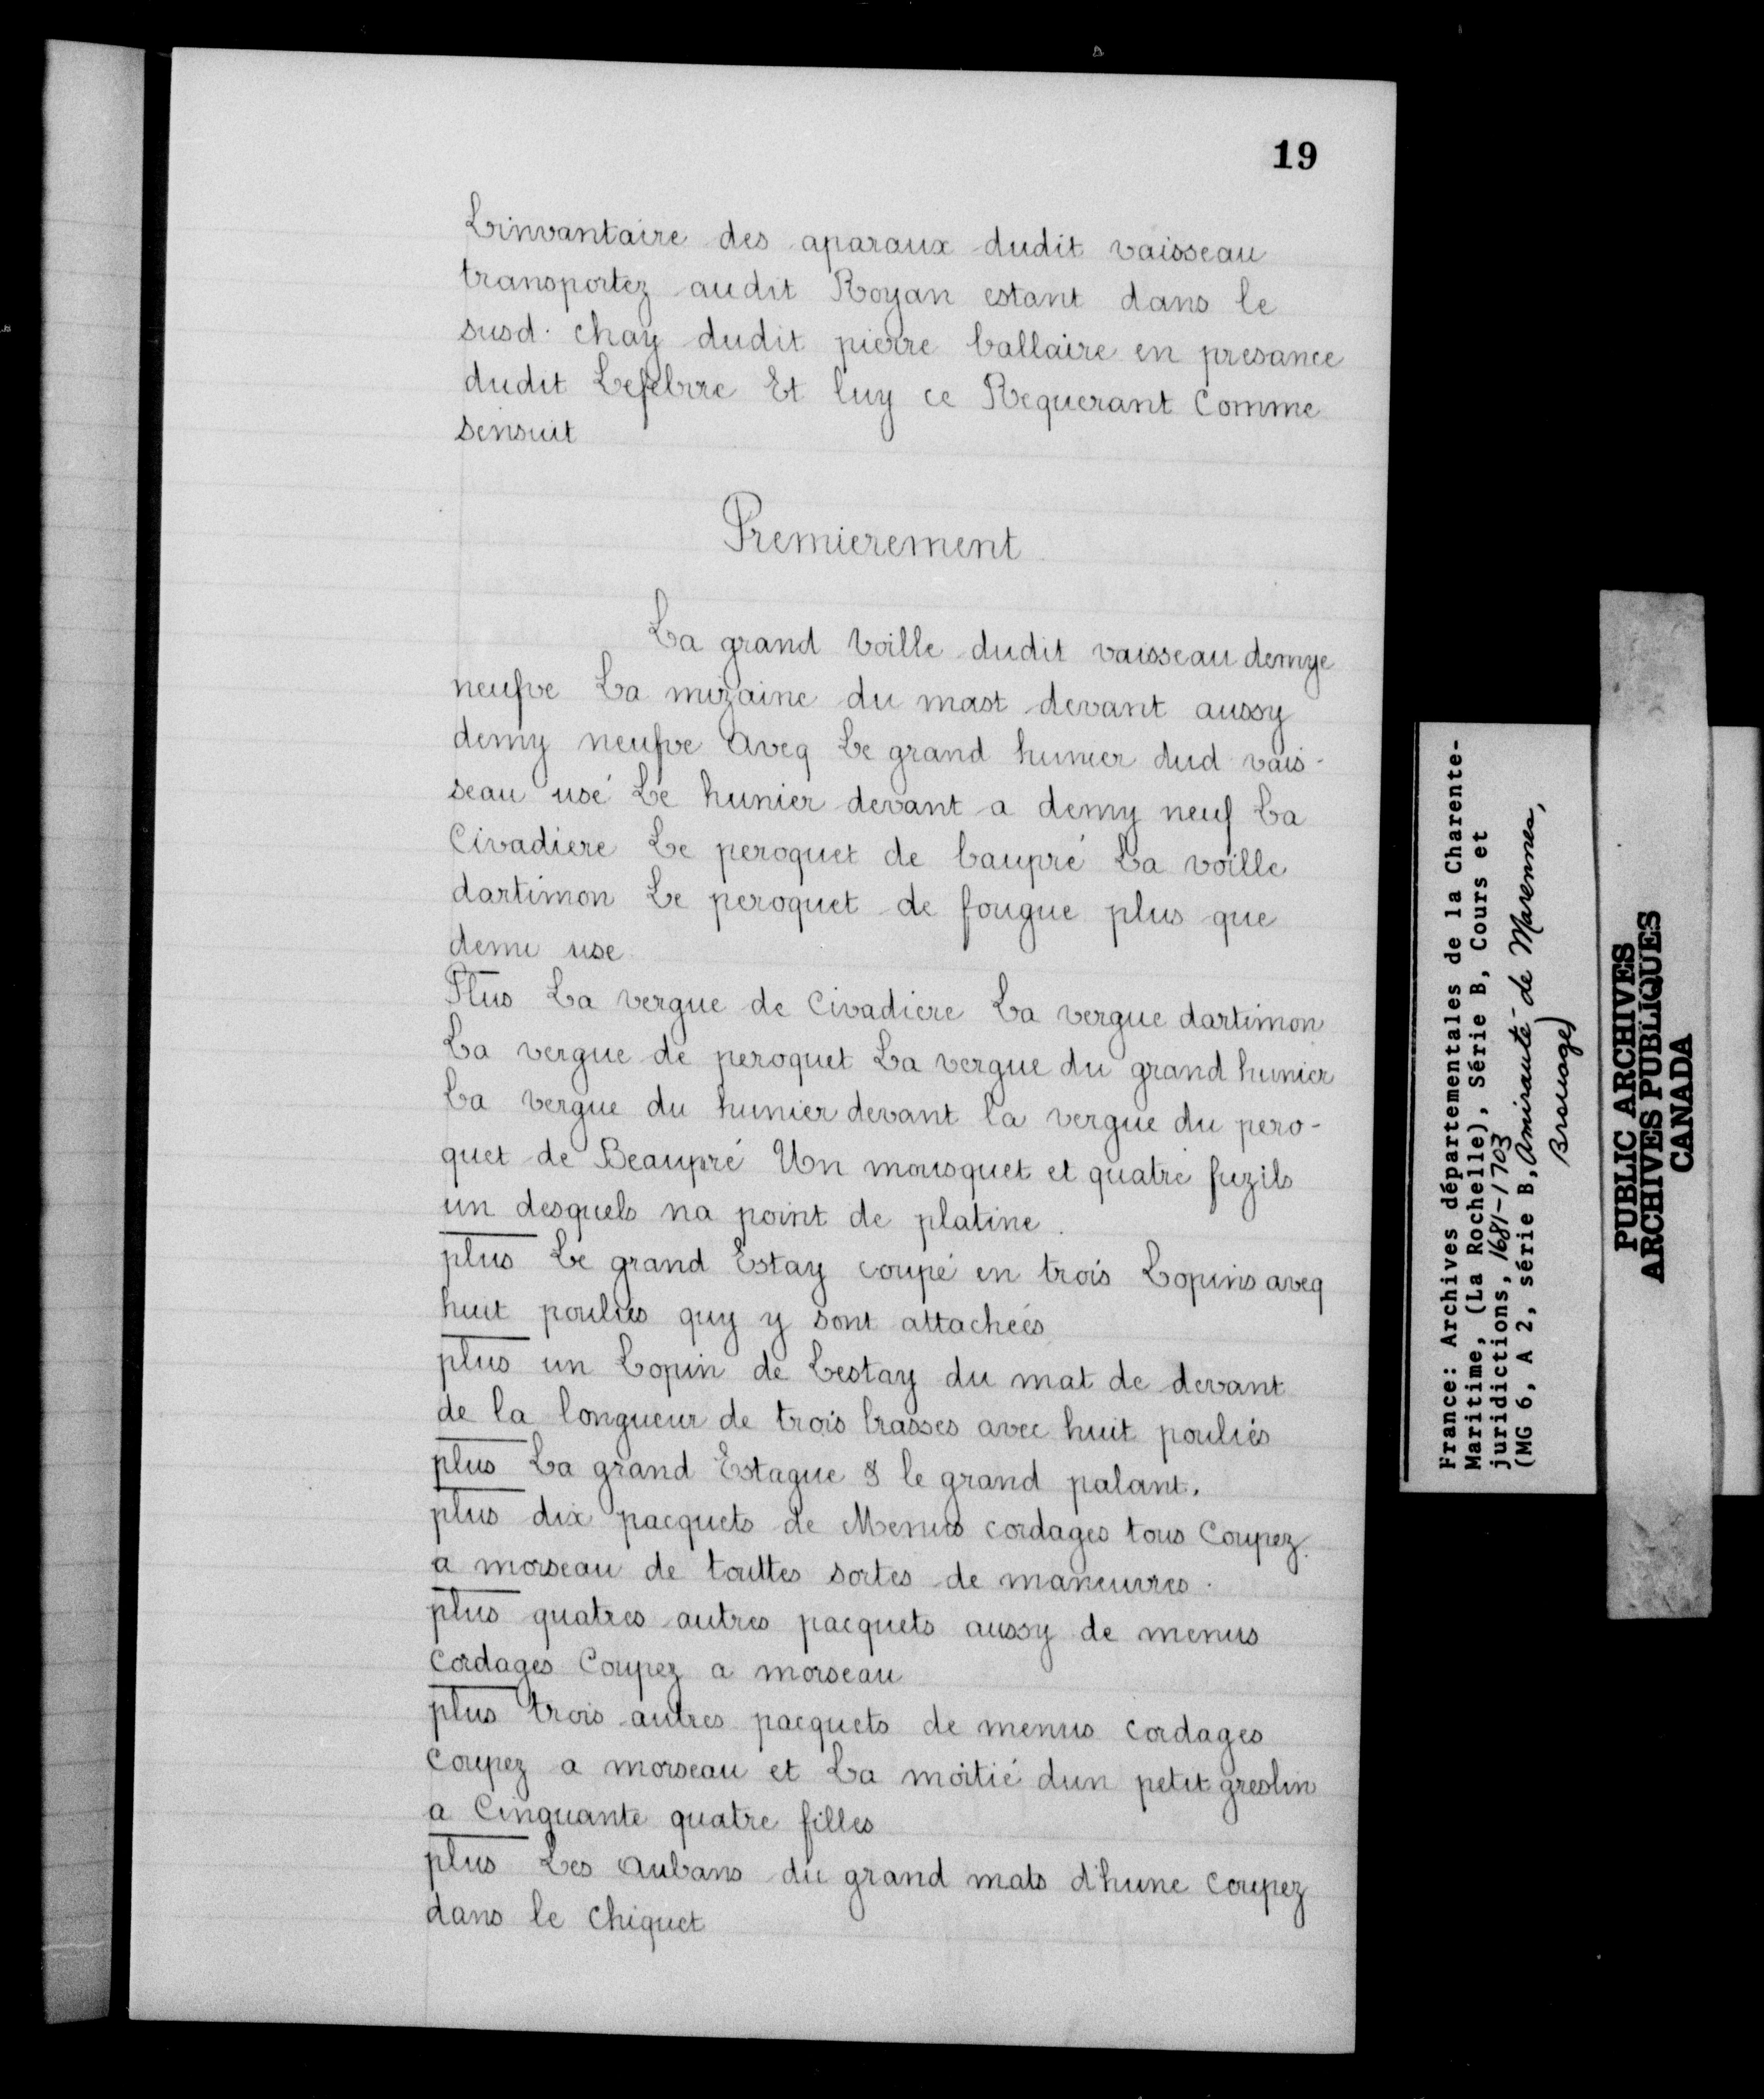 19
Linvantaire des aparaux dudit vaisseau
transportez audit Royan estant dans le
susd. chay dudit pierre ballaire en presance
dudit Lefebvre Et luy ce Requerant Comme
sensuit
Premierement
La grand Voille dudit vaisseau demye
neufve La mizaine du mast devant aussy
demy neufve aveq Le grand hunier dud. vais-
seau usé Le hunier devant a demy neuf La
Civadiere Le peroquet de baupré La voille
dartimon Le peroquet de fougue plus que
demi use.
Plus La vergue de Civadiere La vergue dartimon
La vergue de peroquet La vergue du grand hunier
La vergue du hunier devant la vergue du pero-
quet de Beaupré Un mousquet et quatre fuzils
un desquels na point de platine.
plus Le grand Estay coupé en trois Lopins aveq
huit poulies quy y sont attacheés
plus un Lopin de Lestay du mat de devant
de la longueur de trois brasses avec huit pouliés
plus La grand Estague & le grand palant.
plus dix pacquets de Menus cordages tous Coupez
a morseau de touttes sortes de maneuvres.
plus quatres autres pacquets aussy de menus
Cordages Coupez a morseau
plus trois autres pacquets de menus Cordages
Coupez a morseau et La moitié dun petit greslin
a Cinquante quatre filles
plus Les aubans du grand mats d'hune Coupez
dans le chiquet
France: Archives départementales de la Charente-
Maritime, (La Rochelle), Série B, Cours et
juridictions, 1681-1703
(MG 6, A 2, série B, Amirauté de Marennes,
Brouage)
PUBLIC ARCHIVES
ARCHIVES PUBLIQUES
CANADA